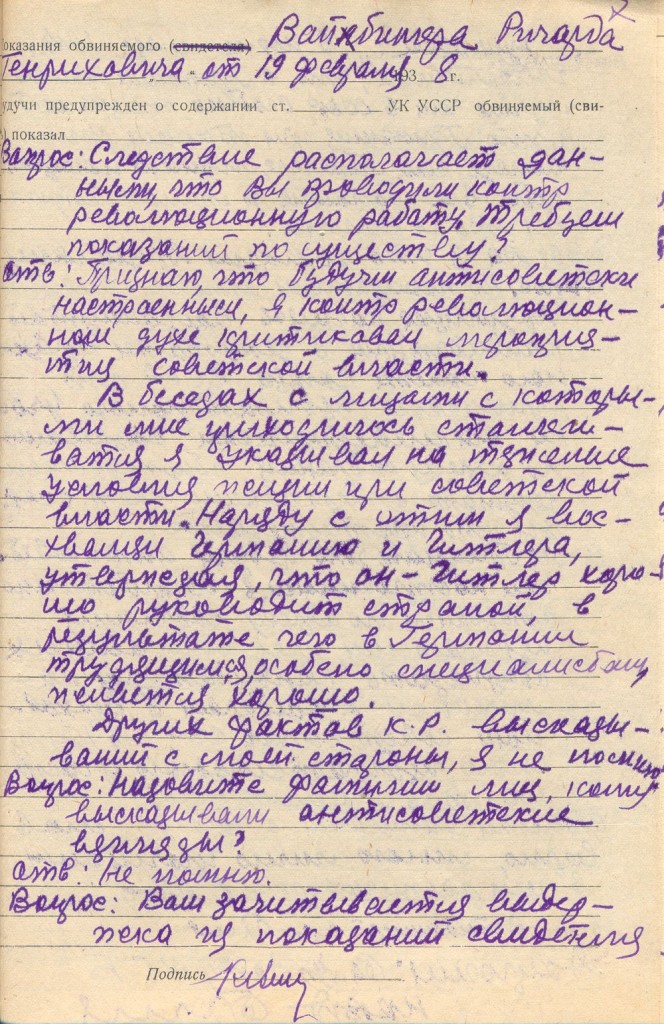 оказания обвиняемого (свидетеля) Вайхбингера Ричарда
Генриховича от 19 февраля 1938 г.
удучи предупрежден о содержании ст. УК УССР обвиняемый (сви-
) показал
Вопрос: Следствие располагает дан-
ными, что Вы проводили контр
революционную работу. Требуем
показаний по существу?
ств: Признаю, что будучи антисоветски
настроенным, я контрреволюцион-
ном духе критиковал мероприя-
тия советской власти.
В беседах с лицами с которы-
ми мне приходилось сталки-
ватся я указывал на тяжелие
условия жизни при советской
власти. Наряду с этим я вос-
хвалял Германию и Гитлера,
утверждая, что он - Гитлер хоро-
шо руководит страной, в
результате чего в Германии
трудящимся, особено специалистам
живется хорошо.
Других фактов К.Р. высказы-
ваний с моей стороны, я не помню
Вопрос: Назовите фамилии лиц, кому
высказывали антисоветские
взгляды?
ств: Не помню.
Вопрос: Вам зачитывается выдер-
жка из показаний свидетеля
Подпись